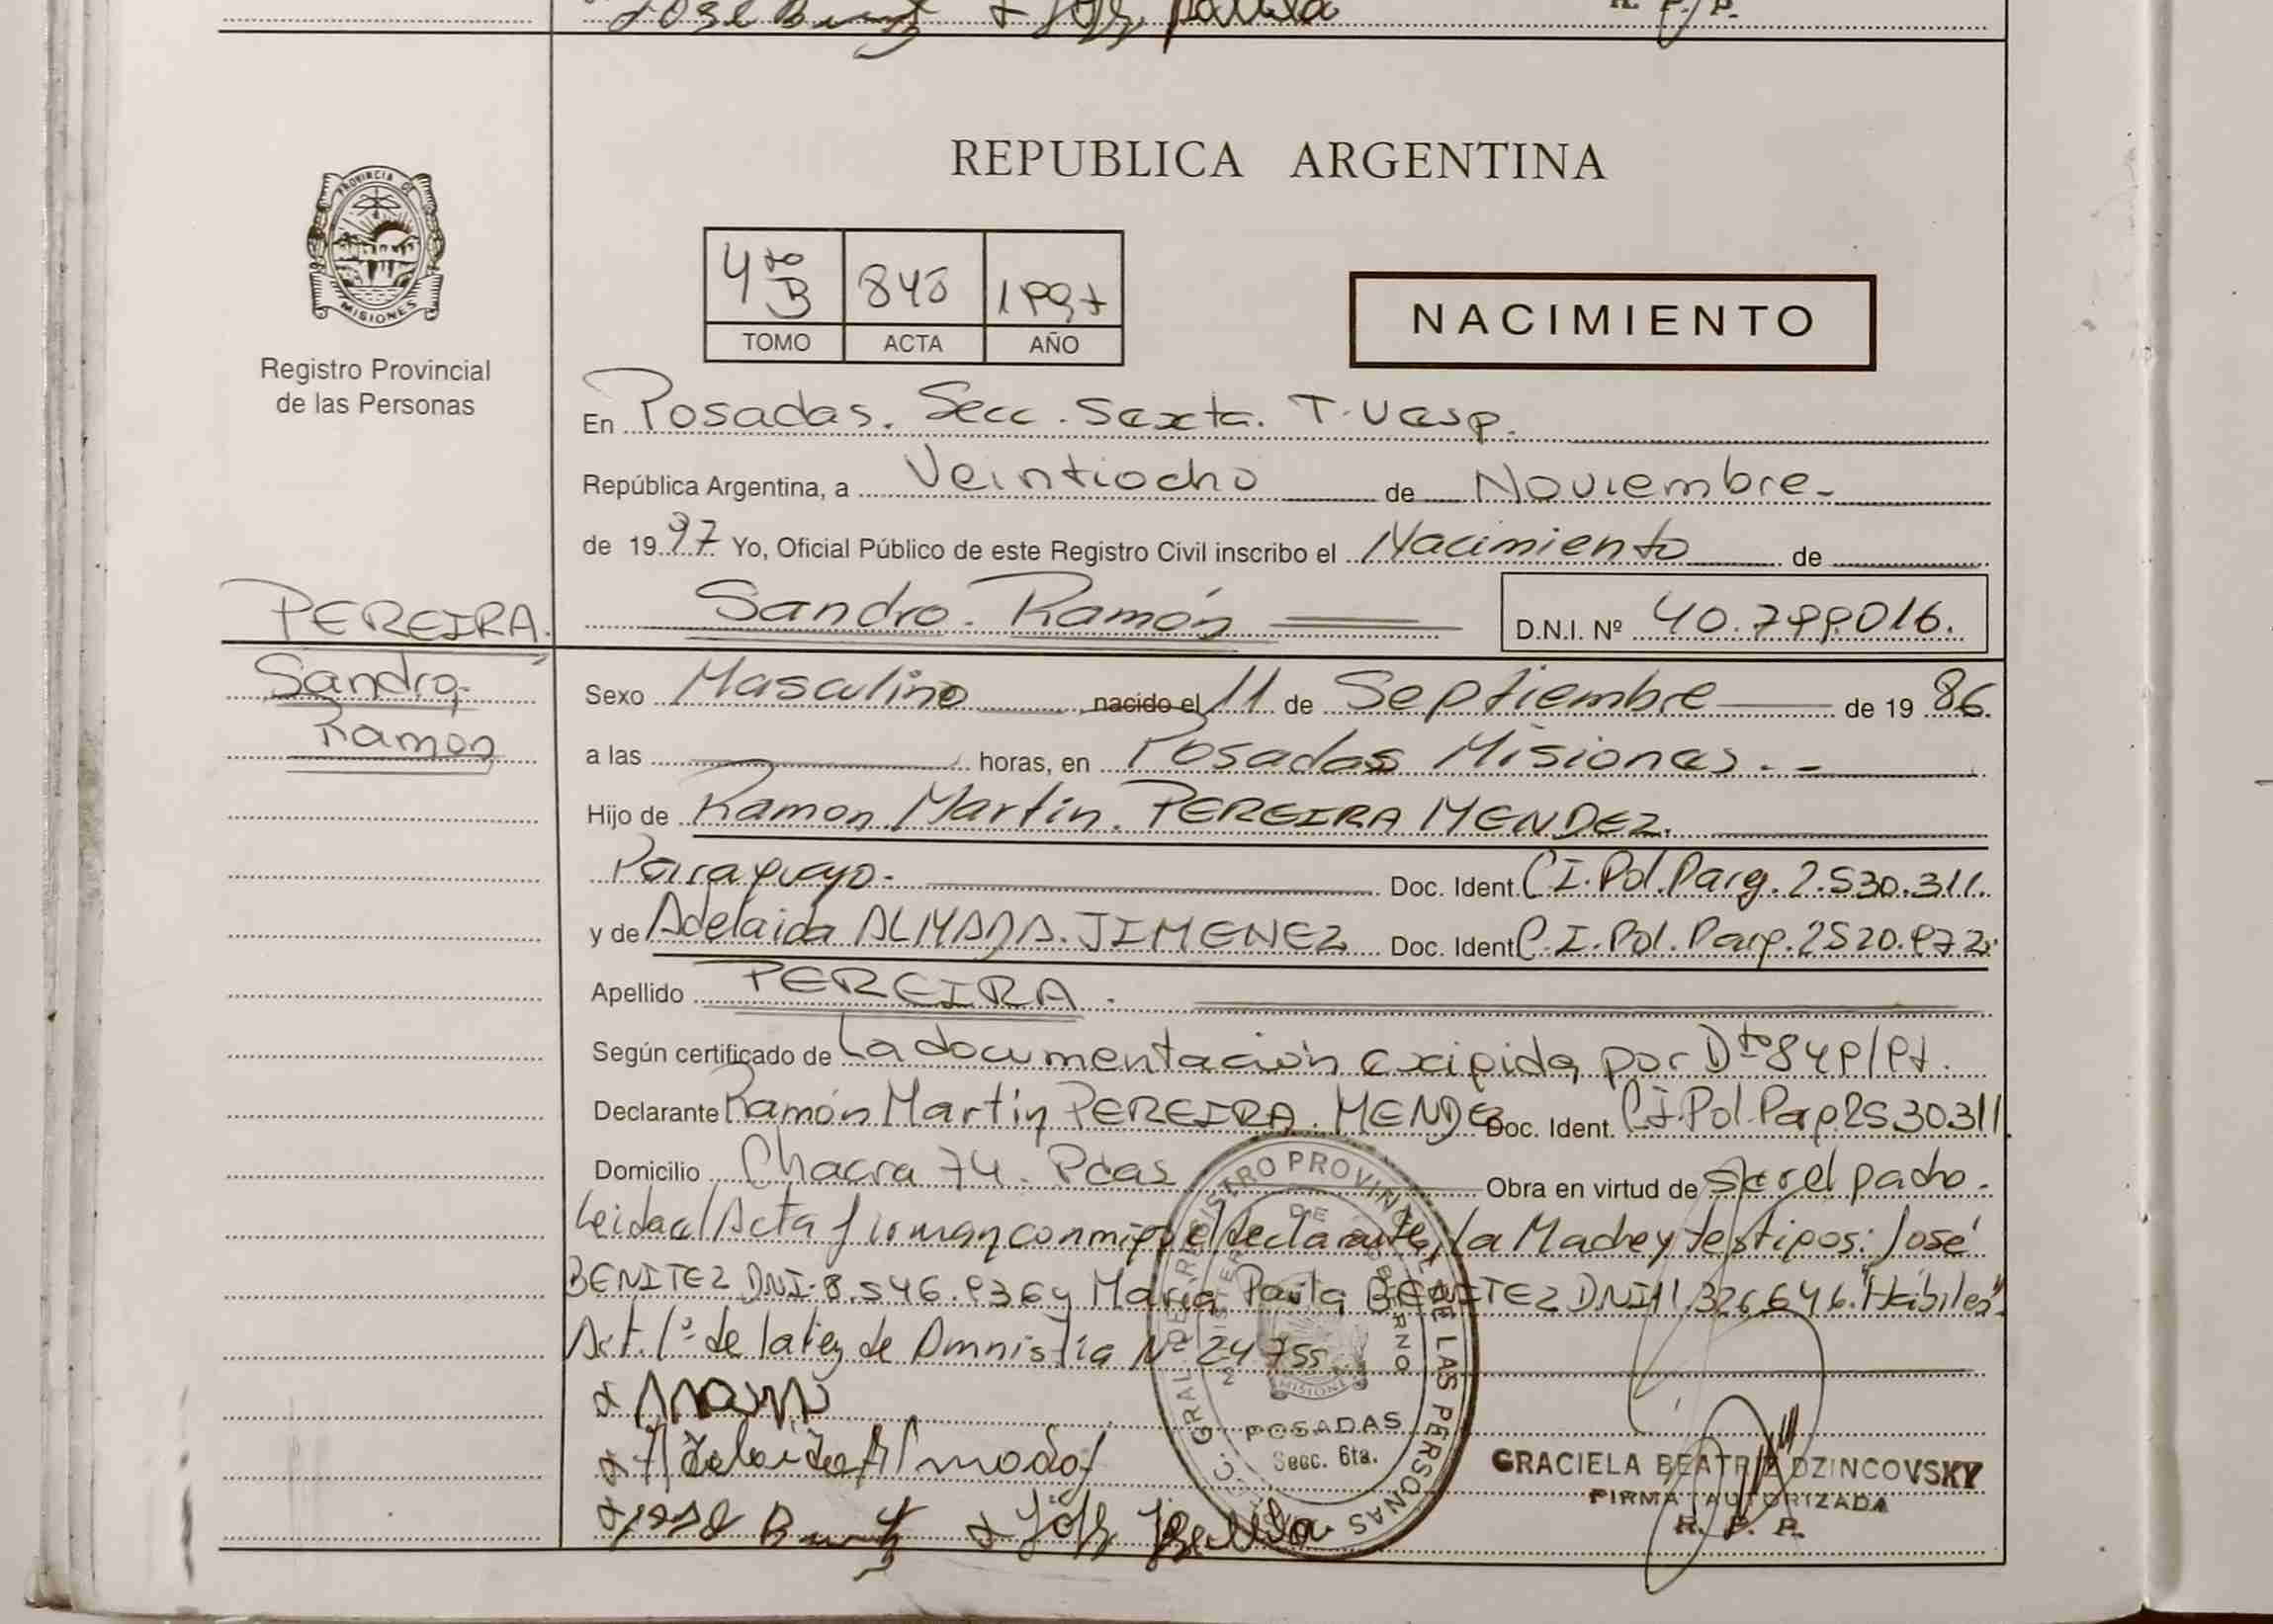 José
R. P. P.
REPUBLICA ARGENTINA
PROVINCIA DE MISIONES
4to B 848 1997
TOMO ACTA AÑO
NACIMIENTO
Registro Provincial
de las Personas
En Posadas. Secc. Sexta. T. Vesp.
República Argentina, a Veintiocho de Noviembre.
de 1997 Yo, Oficial Público de este Registro Civil inscribo el Nacimiento de
PEREIRA.
Sandro. Ramón D.N.I. Nº 40.799.016.
Sandro,
Ramón
Sexo Masculino nacido el 11 de Septiembre de 19 86.
a las horas, en Posadas Misiones.
Hijo de Ramon Martin. PEREIRA MENDEZ.
Paraguayo. Doc. Ident. C.I. Pol. Parg. 2.530.311.
y de Adelaida ALMADA. JIMENEZ Doc. Ident C.I. Pol. Parg. 2520.972.
Apellido PEREIRA.
Según certificado de La documentación exigida, por Dto 849/97.
Declarante Ramón Martin PEREIRA. MENDEZ Doc. Ident. C.I. Pol. Parg 2530311.
Domicilio Chacra 74. Pdas Obra en virtud de Ser el padre.
Leida el Acta firman conmigo el declarante, la Madre y testigos: José
BENITEZ DNI. 8.546.936 y Maria Paula BENITEZ DNI 11.326.646. "Hábiles".
Art. 1º de la Ley de Amnistia Nº 24755.
Adelaida Almada
José
DIREC. GRAL. DE REGISTRO PROVINCIAL DE LAS PERSONAS
MINISTERIO DE GOBIERNO
MISIONES
POSADAS
Secc. 6ta.
GRACIELA BEATRIZ DZINCOVSKY
FIRMA AUTORIZADA
R. P. P.